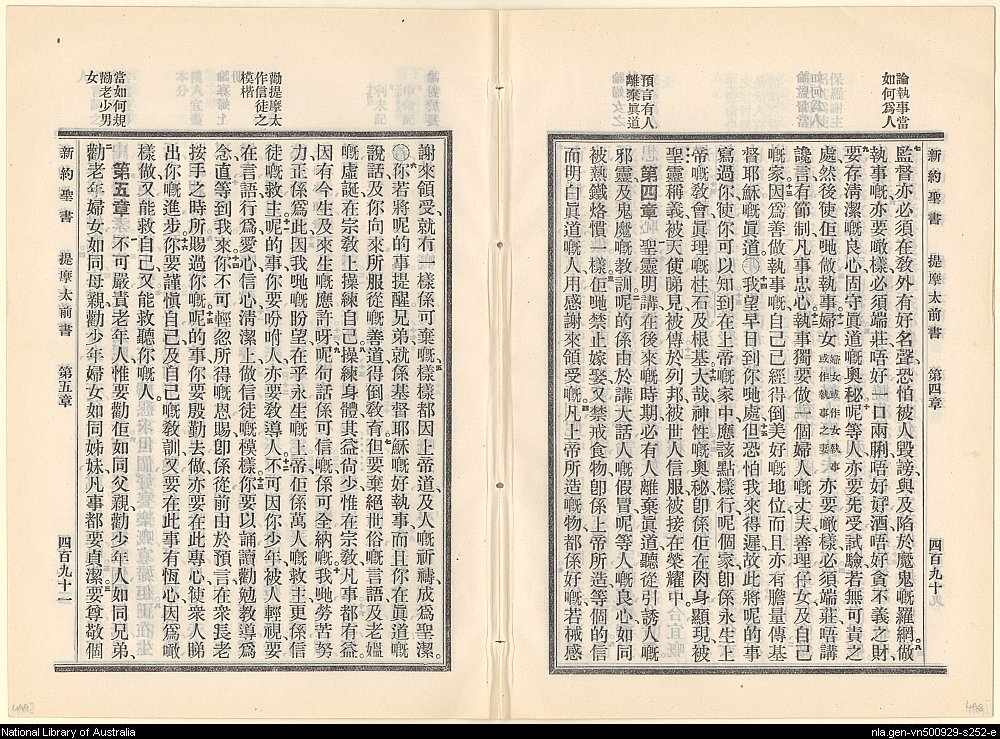 論執事當
如何爲人
預言有人
離棄眞道
新約聖書 提摩太前書 第四章 四百九十
監督亦必須在教外有好名聲、恐怕被人毀謗、與及陷於魔鬼嘅羅網。做
執事嘅、亦要噉樣、必須端莊、唔好一口兩脷、唔好好酒、唔好貪不義之財、
要存清潔嘅良心、固守眞道嘅奧秘、呢等人亦要先受試驗、若無可責之
處、然後使佢哋做執事。婦女亦要噉樣、必須端莊、唔講
婦女或作女執事
或作執事之妻
讒言、有節制、凡事忠心。執事獨要做一個婦人嘅丈夫、善理仔女及自己
嘅家。因爲善做執事嘅、自己已經得倒美好嘅地位、而且亦有膽量傳基
督耶穌嘅眞道。我望早日到你哋處、但恐怕我來得遲、故此將呢的事
寫過你、使你可以知到在上帝嘅家中、應該點樣行、呢個家、卽係永生上
帝嘅敎會、眞理嘅柱石及根基。大哉、神性嘅奧秘、卽係佢在肉身顯現、被
聖靈稱義、被天使睇見、被傳於列邦、被世人信服、被接在榮耀中。
第四章 聖靈明講、在後來嘅時期、必有人離棄眞道、聽從引誘人嘅
邪靈、及鬼魔嘅教訓、呢的係由於講大話人嘅假冒、呢等人嘅良心、如同
被熱鐵烙慣一樣、佢哋禁止嫁娶、又禁戒食物、卽係上帝所造、等個的信
而明白眞道嘅人、用感謝來領受嘅。凡上帝所造嘅物、都係好嘅、若械感
勸提摩太
作信徒之
模楷
當如何規
勸老少男
女
謝來領受、就有一樣係可棄嘅、樣樣都因上帝道、及人嘅祈禱、成爲聖潔。
你若將呢的事提醒兄弟、就係基督耶穌嘅好執事、而且你在眞道嘅
說話、及你向來所服從嘅善道、得倒敎育。但要棄絕世俗嘅言語、及老媼
嘅虛誕、在宗敎上操練自己。操練身體、其益尙少、惟在宗敎、凡事都有益、
因有今生及來生嘅應許呀。呢句話係可信嘅、係可全納嘅。我哋勞苦努
力、正係爲此、因我哋嘅盼望、在乎永生嘅上帝、佢係萬人嘅救主、更係信
徒嘅救主。呢的事你要吩咐人、亦要敎導人。不可因你少年、被人輕視、要
在言語、行爲、愛心、信心、清潔上、做信徒嘅模樣。你要以誦讀、勸勉、敎導爲
念、道等到我來。你不可輕忽所得嘅恩賜、卽係從前由於預言、在衆長老
按手之時、所賜過你嘅。呢的事你要殷勤去做、亦要在此專心、使衆人睇
出你嘅進步。你要謹愼自己、及自己嘅敎訓、又要在此事有恆心、因爲噉
樣做、又能救自己、又能救聽你嘅人。
第五章 不可嚴責老年人、惟要勸佢如同父親、勸少年人如同兄弟、
勸老年婦女如同母親、勸少年婦女如同姊妹、凡事都要貞潔。要尊敬個
新約聖書 提摩太前書 第五章 四百九十一
National Library of Australia
nla.gen-vn500929-s252-e